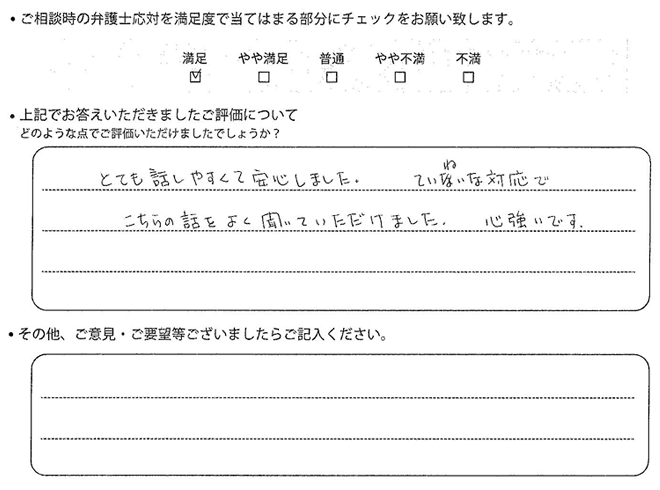 • ご相談時の弁護士応対を満足度で当てはまる部分にチェックをお願い致します。
満足 やや満足 普通 やや不満 不満
☑ ☐ ☐ ☐ ☐
• 上記でお答えいただきましたご評価について
どのような点でご評価いただけましたでしょうか？
ね
とても話しやすくて安心しました. ていないな対応で
こちらの話をよく聞いていただけました. 心強いです.
• その他、ご意見・ご要望等ございましたらご記入ください。